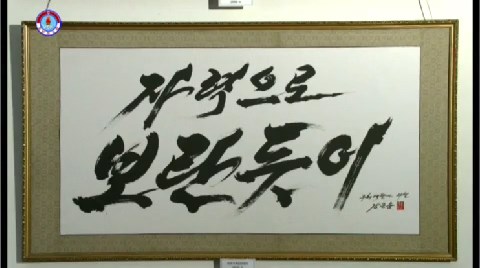 자력으로
보란듯이